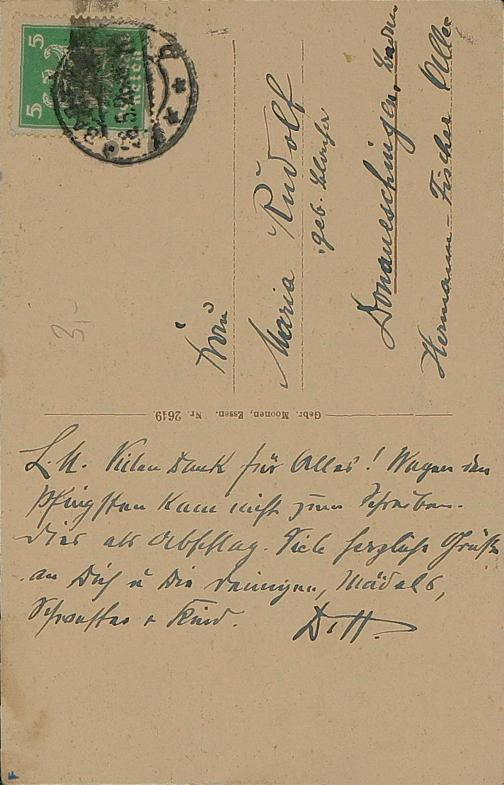 5
5
3,-
Frau
Maria Rudolf
geb.
Donaueschingen, Baden
Hermann-Fischer Allee
Gebr. Moonen, Essen. Nr. 2649
L. M. Vielen Dank für Alles! Wegen den
Pfingsten kam nicht zum Schreiben.
Dies als Abschlag. Viele herzliche Grüße
an Dich u die Deinigen, Mädels,
Schwester + Kind. D. H.